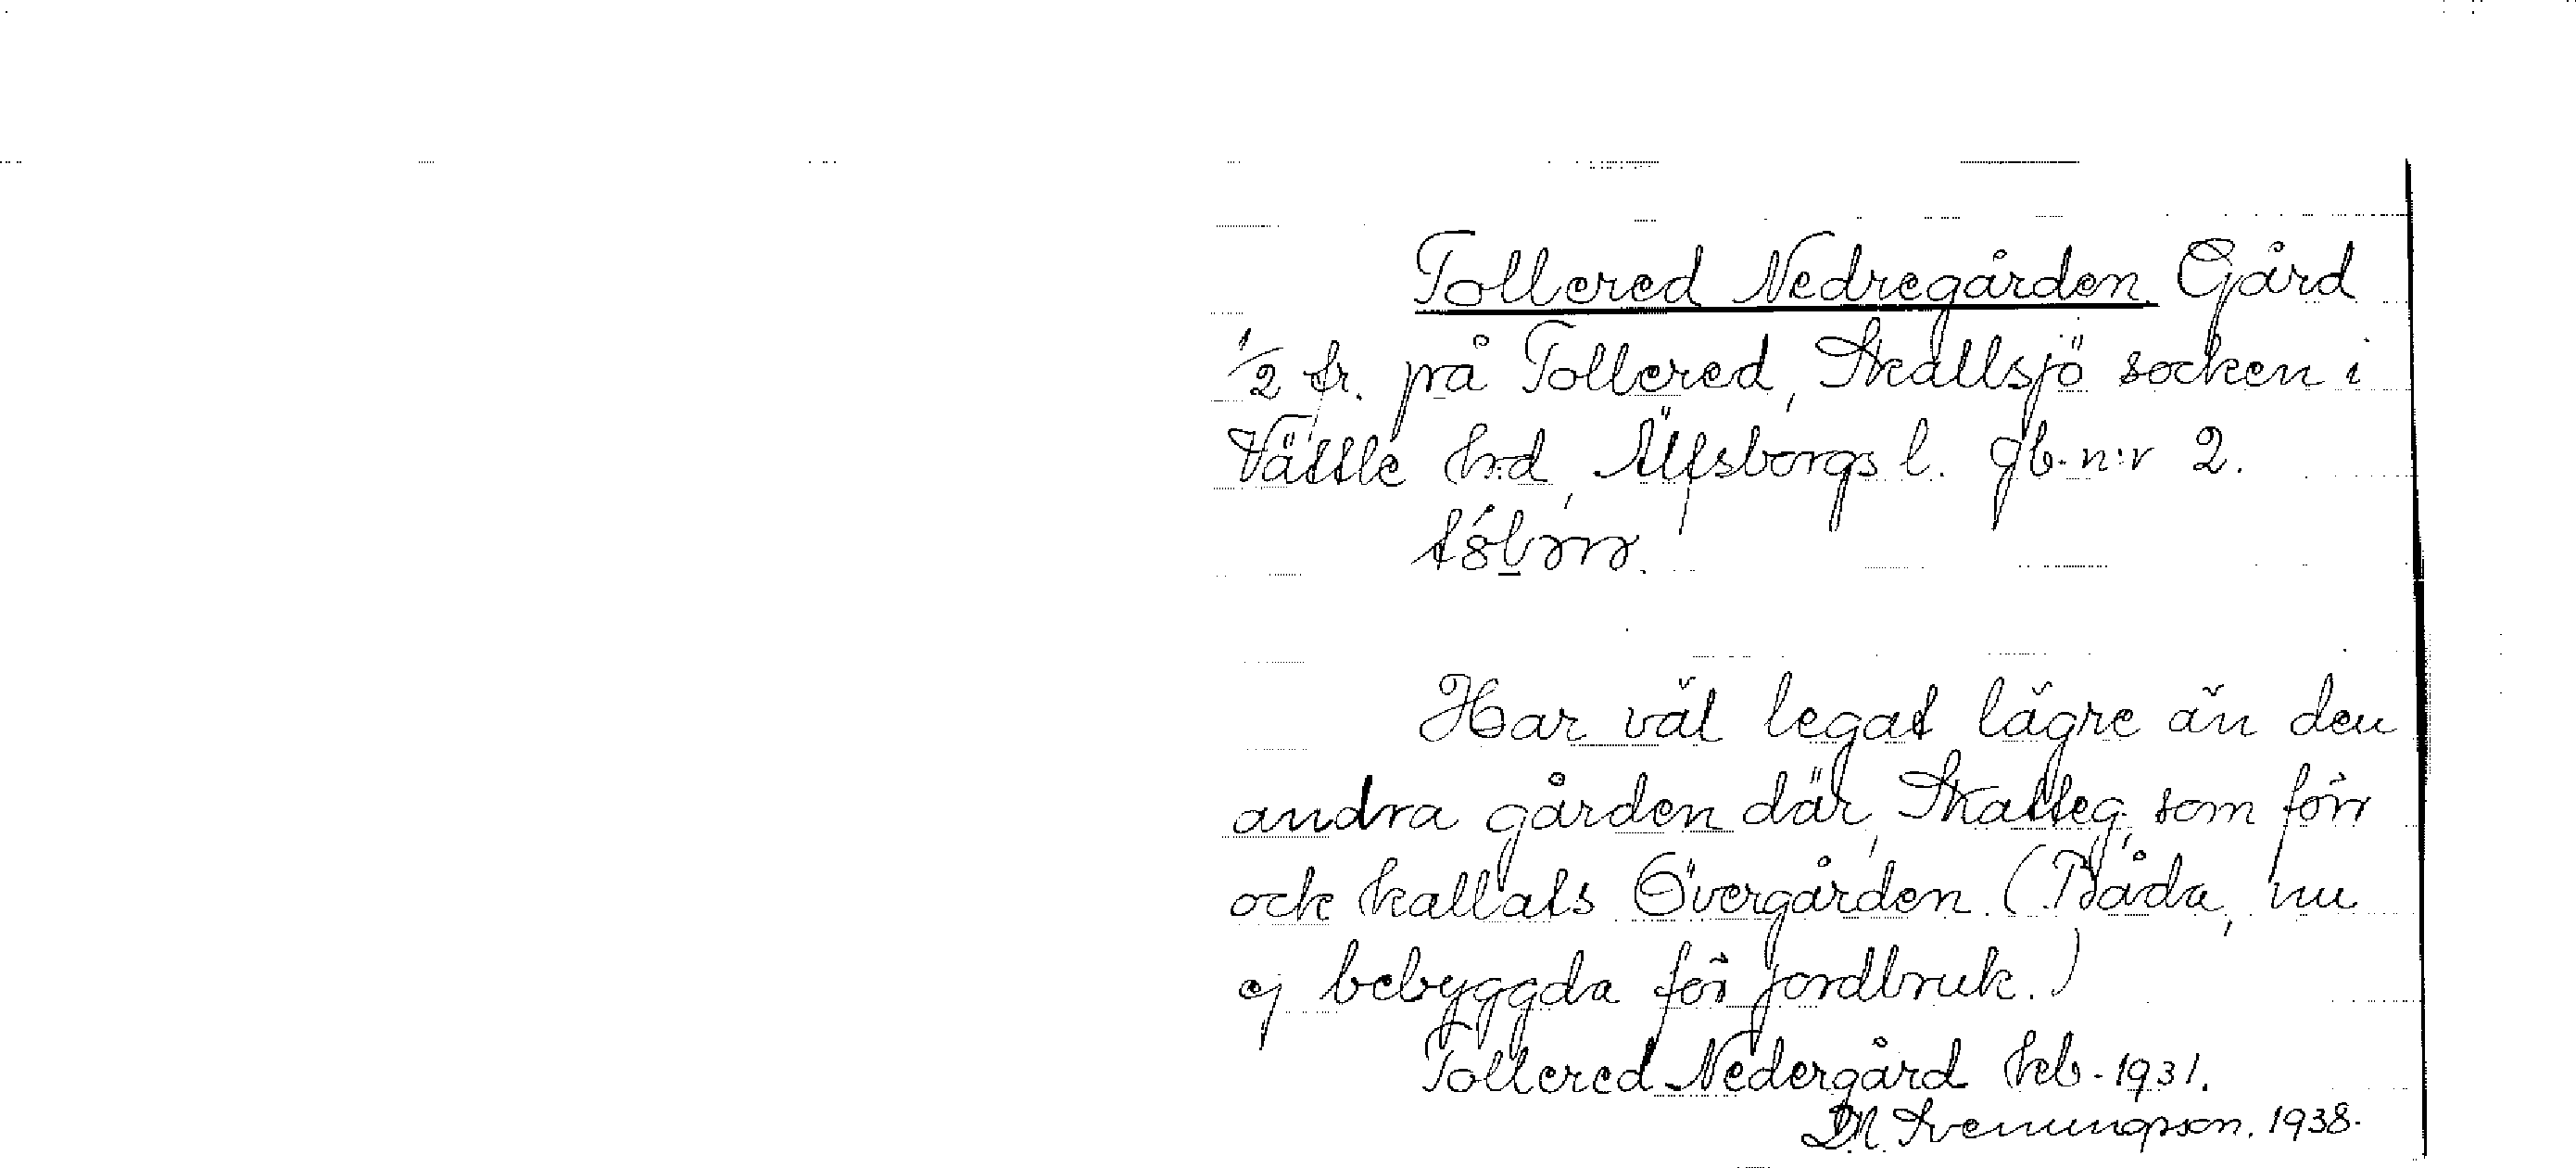 Tollered Nedregården. Gård
1/2 fr. på Tollered, Skallsjö socken i
Vättle hrd, Älfsborgs l. gb. n:r 2.
Har väl legat lägre än den
andra gården där, Skatteg, som förr
ock kallats Övergården. (Båda, nu
ej bebyggda för jordbruk.)
Tollered Nedergård kb. 1931.
D.N. Svenungsson. 1938.